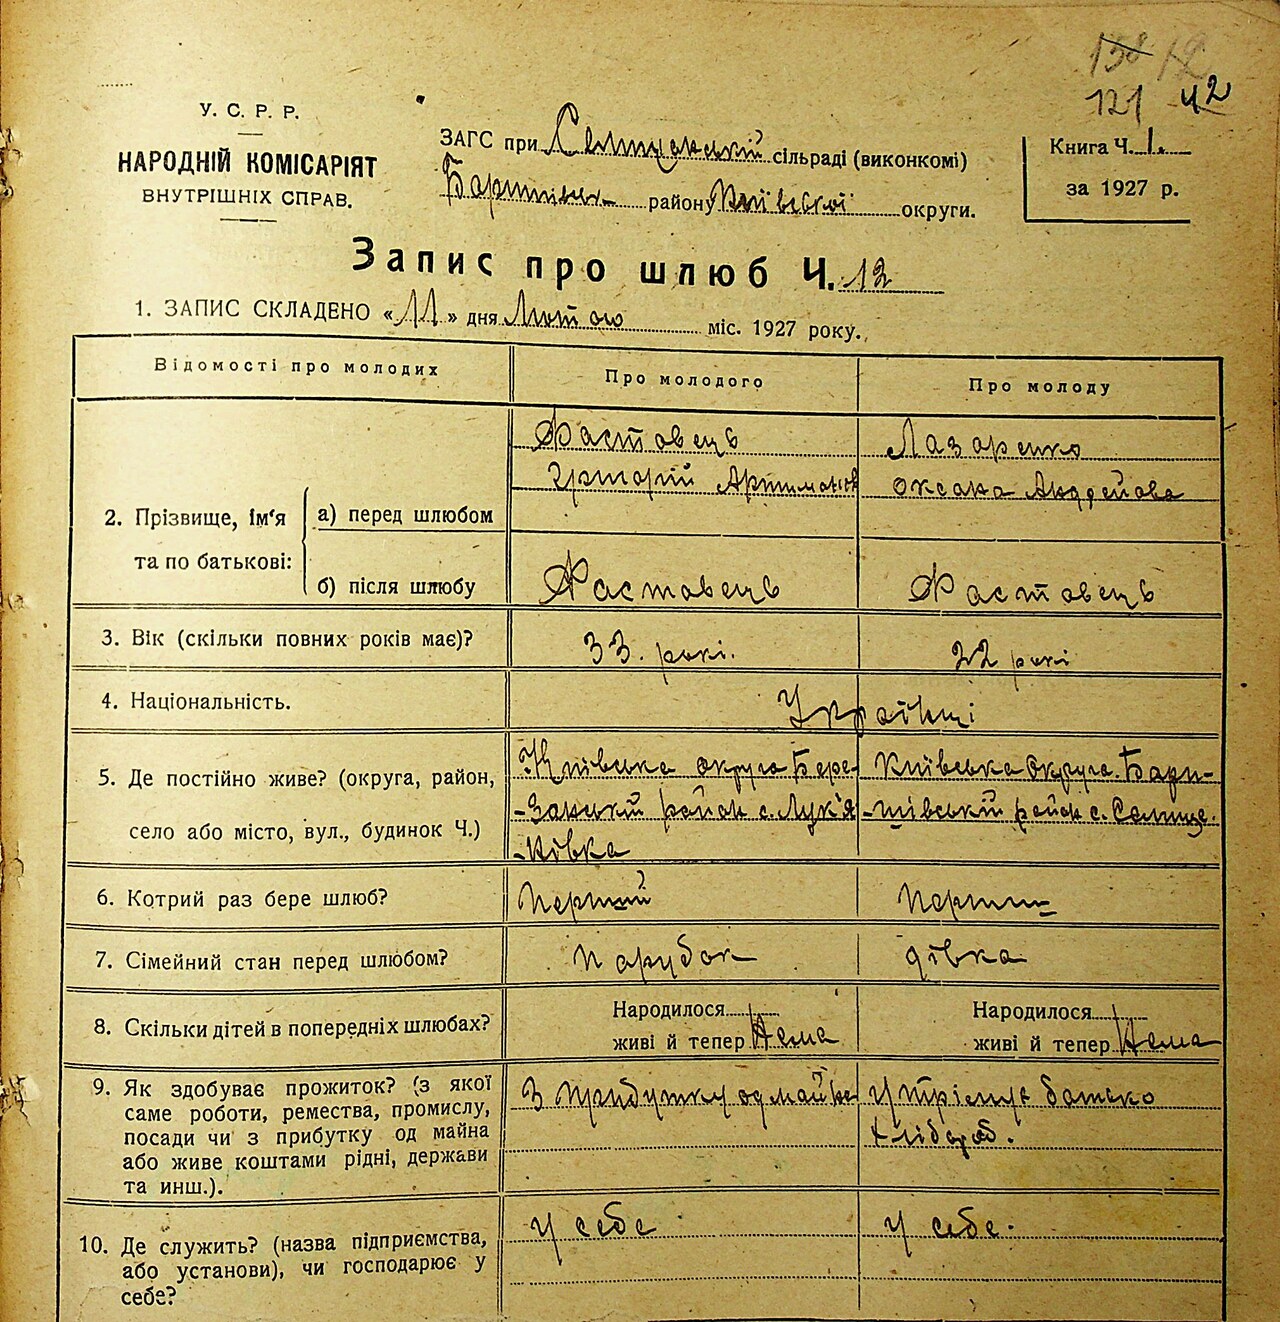 158 12
121 42
У. С. Р. Р.
НАРОДНІЙ КОМІСАРІЯТ
ВНУТРІШНІХ СПРАВ.
ЗАГС при Селищанській сільраді (виконкомі)
району Київської округи.
Книга Ч. 1.
за 1927 р.
Запис про шлюб Ч. 12
1. ЗАПИС СКЛАДЕНО «11» дня Лютого міс. 1927 року.
Відомості про молодих
Про молодого
Про молоду
2. Прізвище, ім'я та по батькові:
а) перед шлюбом
Фастовець
Григорій Артимонов
Лазаренко
Оксана Андрейова
б) після шлюбу
Фастовець
Фастовець
3. Вік (скільки повних років має)?
33. рокі.
22 рокі
4. Національність.
Українці
5. Де постійно живе? (округа, район,
село або місто, вул., будинок Ч.)
Київська округа Бере-
-Занській район с. Лукʼя
-нівка
Київська Округа. Бари-
-шівській район с. Селище.
6. Котрий раз бере шлюб?
Перший
7. Сімейний стан перед шлюбом?
Парубок
дівка
8. Скільки дітей в попередніх шлюбах?
Народилося
живі й тепер Нема
Народилося
живі й тепер Нема
9. Як здобуває прожиток? (з якої
саме роботи, ремества, промислу,
посади чи з прибутку од майна
або живе коштами рідні, держави
та инш.).
З прибутку од майна
батько
хлібороб.
10. Де служить? (назва підприємства,
або установи), чи господарює у
себе?
у себе
у себе.